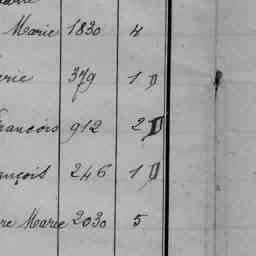 Marie 1830 4
rie 379 1 D
rancois 912 2 D
ançois 246 1 D
re Marie 2030 5